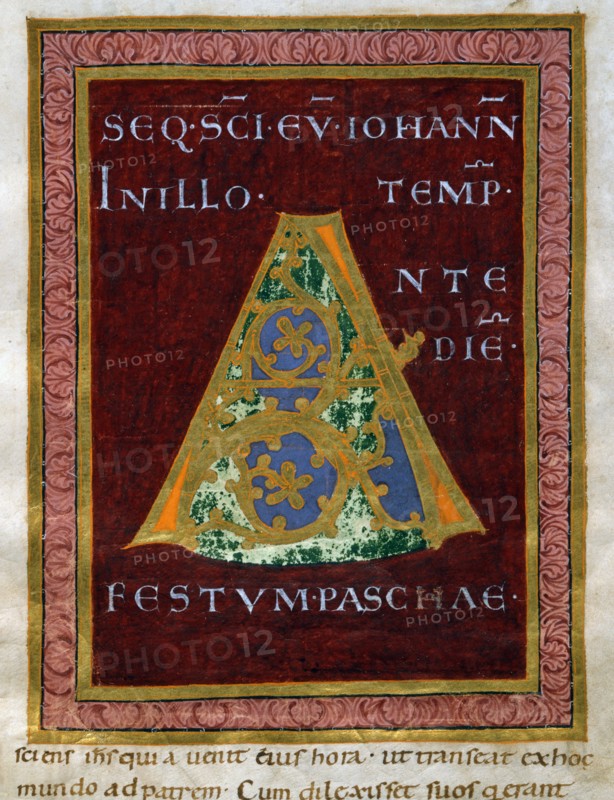 SEQ·SC̄I·EV̄·IOHANN̄
INILLO· TEMP·
A NTE
DIE·
FESTVM·PASCHAE·
sciens ih̄s quia uenit eius hora· ut transeat exhoc
mundo adpatrem· Cum dilexisset suos q erant
PHOTO12